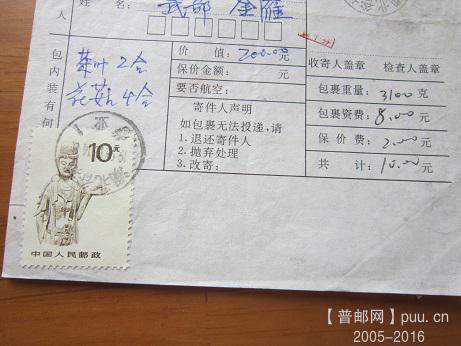 人
姓名：
包内装有何
茶叶 2合
花菇 4合
价 值：200.00元
保价金额： 元
要否航空：
寄件人声明
如包裹无法投递，请
1.退还寄件人
2.抛弃处理
3.改寄：
收寄人盖章 检查人盖章
包裹重量：3100克
包裹资费：8.00元
保 价 费：2.00元
共 计：10.00元
10元
中国人民邮政
【普邮网】puu.cn
2005-2016